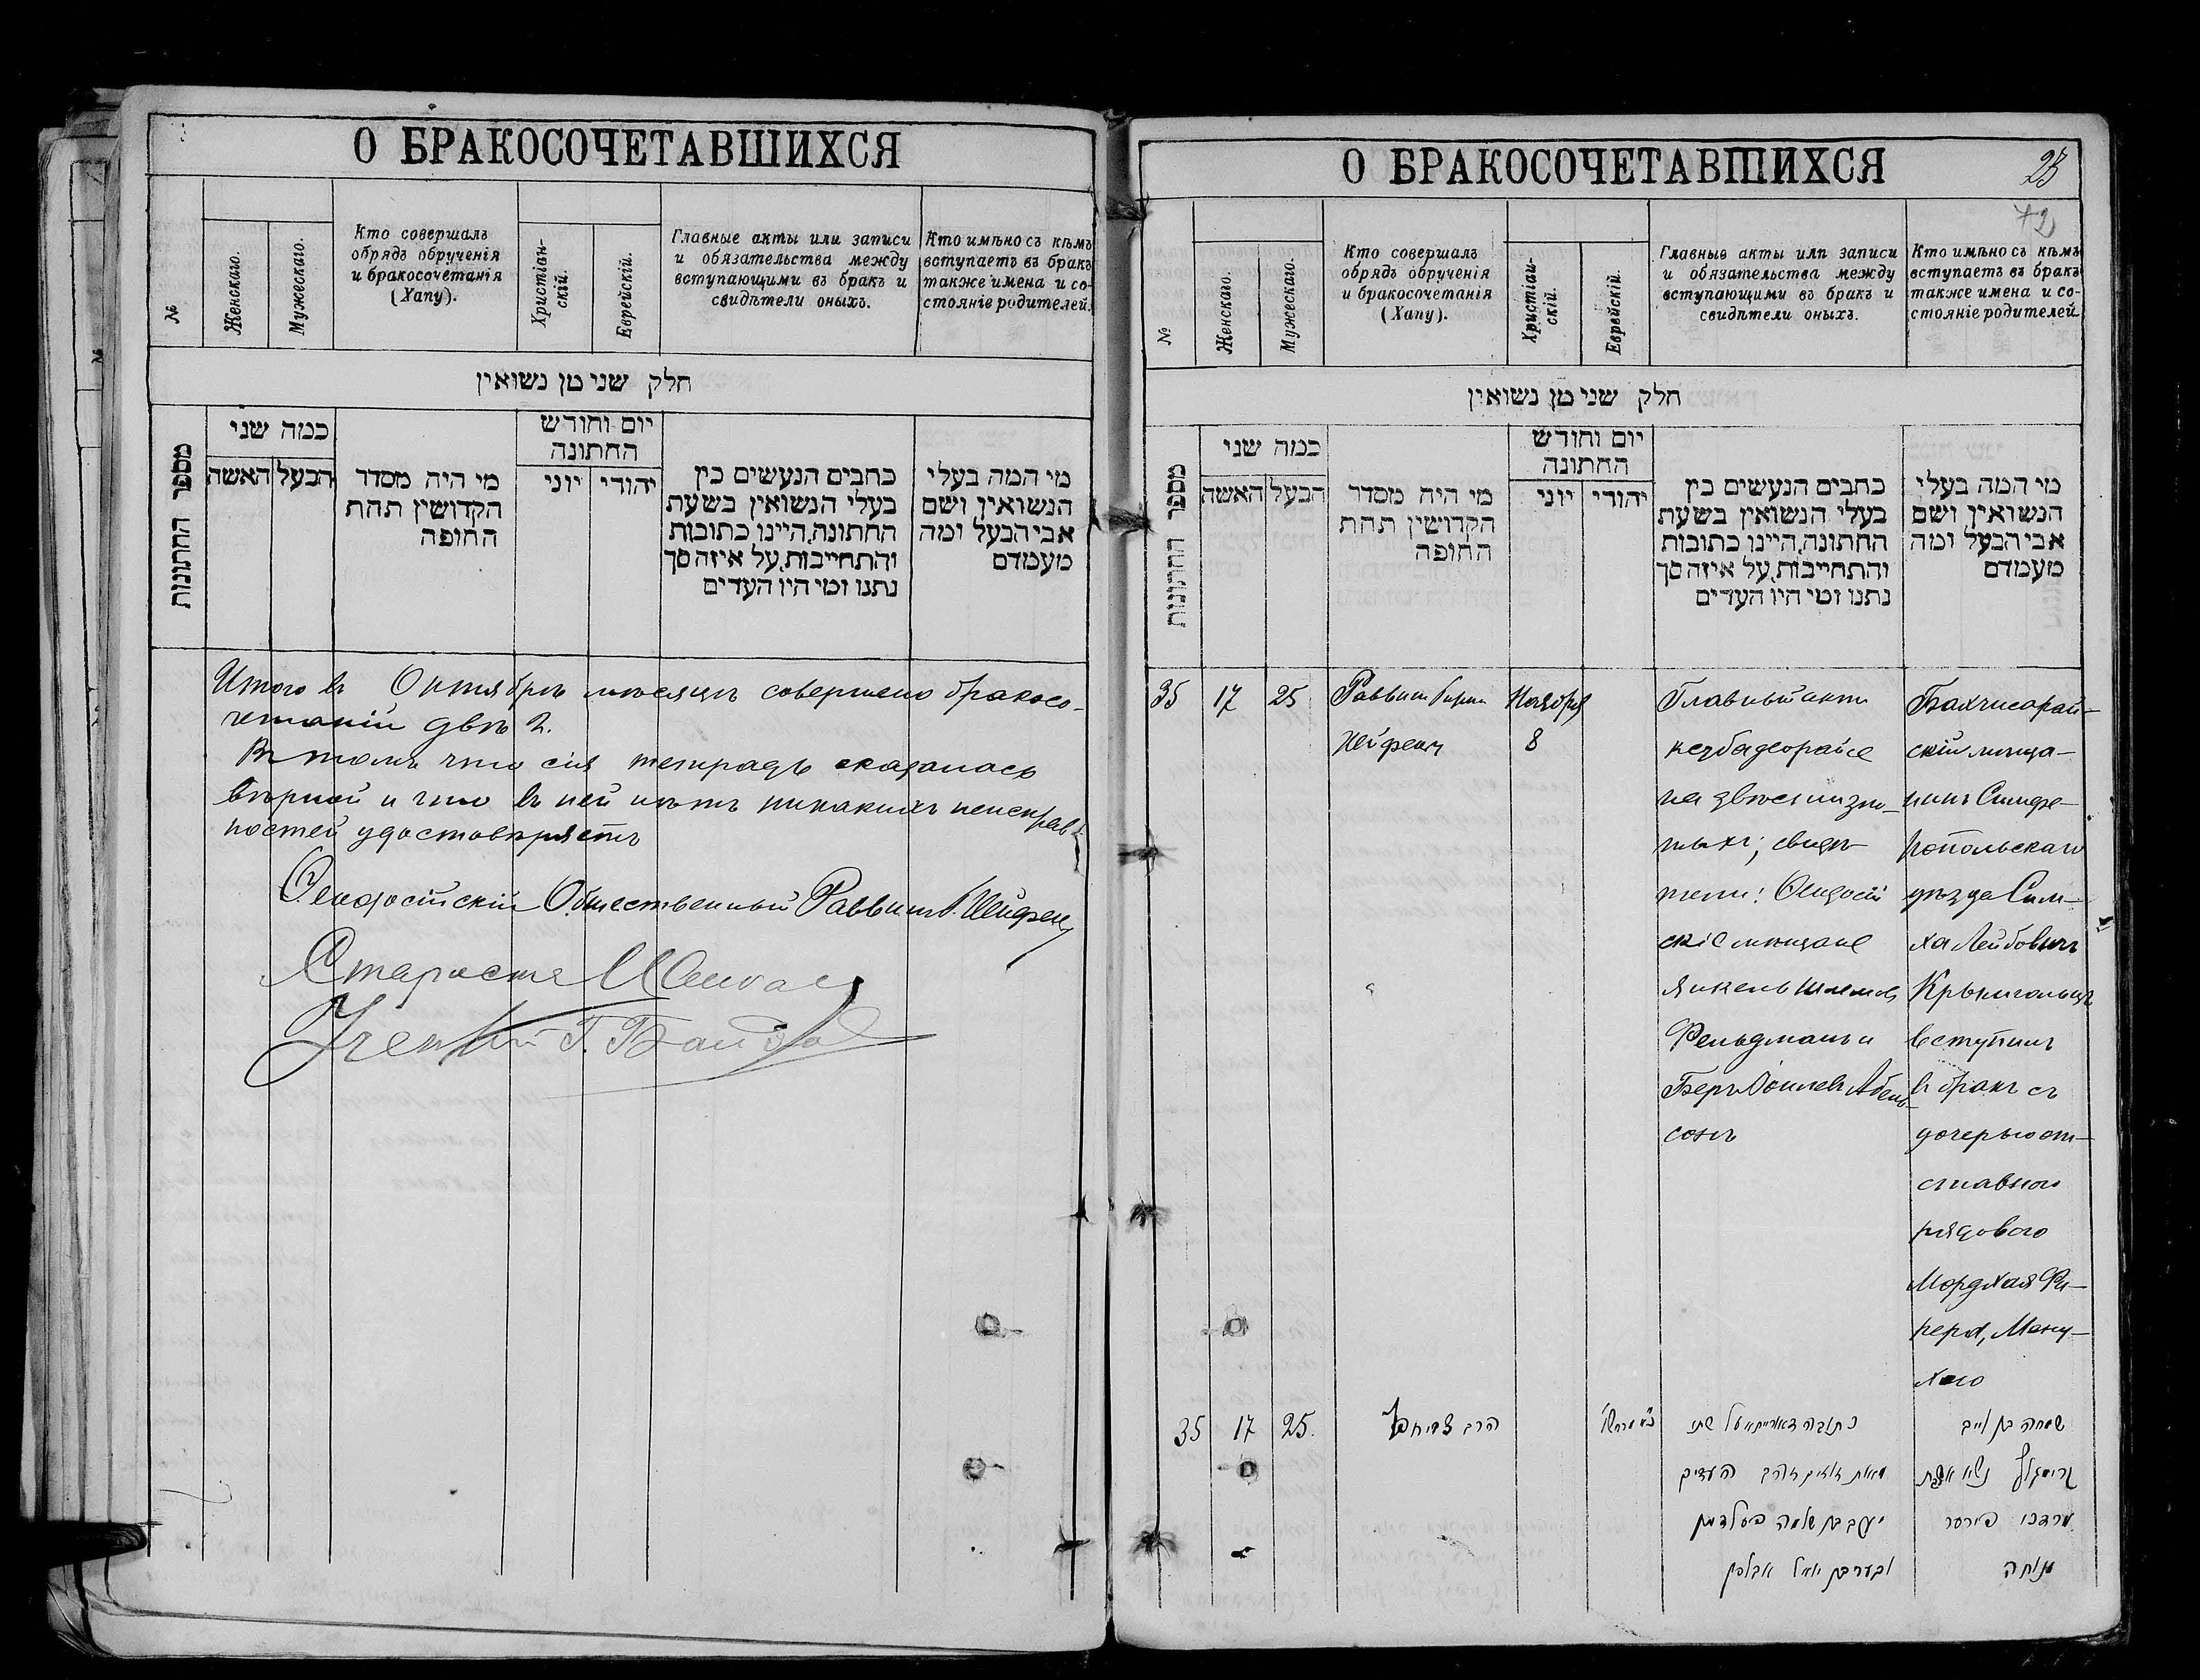 О БРАКОСОЧЕТАВШИХСЯ
№
Женскаго.
Мужескаго.
Кто совершалъ
обрядъ обрученія
и бракосочетанія
(Хапу).
Христіан-
скій.
Еврейскій.
Главные акты или записи
и обязательства между
вступающими въ бракъ и
свидѣтели оныхъ.
Кто имѣно съ кѣмъ
вступаетъ въ бракъ
также имена и со-
стояніе родителей.
חלק שני מן נשואין
מספר החתונות
כמה שני
הבעל
האשה
מי היה מסדר
הקדושין תחת
החופה
יום וחודש
החתונה
יהודי
יוני
כתבים הנעשים בין
בעלי הנשואין בשעת
החתונה, היינו כתובות
והתחייבות, על איזה סך
נתנו ומי היו העדים
מי המה בעלי
הנשואין ושם
אבי הבעל ומה
מעמדם
Итого въ Октябрѣ мѣсяцѣ совершено бракосо-
четаній двѣ 2.
Въ томъ что сія тетрадь оказалась
вѣрной и что въ ней нѣтъ никакихъ неисправ-
ностей удостовѣряетъ
Ѳеодосійскій Общественный Раввинъ
Староста
Ученый Г.
О БРАКОСОЧЕТАВШИХСЯ
23
72
№
Женскаго.
Мужескаго.
Кто совершалъ
обрядъ обрученія
и бракосочетанія
(Хапу).
Христіан-
скій.
Еврейскій.
Главные акты или записи
и обязательства между
вступающими въ бракъ и
свидѣтели оныхъ.
Кто имѣно съ кѣмъ
вступаетъ въ бракъ
также имена и со-
стояніе родителей.
חלק שני מן נשואין
מספר החתונות
כמה שני
הבעל
האשה
מי היה מסדר
הקדושין תחת
החופה
יום וחודש
החתונה
יהודי
יוני
כתבים הנעשים בין
בעלי הנשואין בשעת
החתונה, היינו כתובות
והתחייבות, על איזה סך
נתנו ומי היו העדים
מי המה בעלי
הנשואין ושם
אבי הבעל ומה
מעמדם
35
17
25
Раввинъ
Ноября
8
Главный актъ
на двѣсти зло-
тыхъ; свидѣ-
тели: Ѳеодосій
скіе мѣщане
Янкель Шлемов
Фельдманъ и
Беръ Іоилевъ Абель-
сонъ
Бахчисарай-
скій мѣща-
нинъ Симфе-
ропольскаго
уѣзда Сим-
ха Лейбовичъ
Крымгольцъ
вступилъ
въ бракъ съ
дочерью от-
ставного
рядового
Мордхая Фи-
рера, Мену-
хою
35
17
25.
הרב
כתובה דאורייתא על שתי
מאות זוזים זהב העדים
יעקב בן שלמה פעלדמן
ובער בן יואל אבלסן
שמחה בן לייב
קרימגלץ נשא את בת
מרדכי פירער
מנוחה